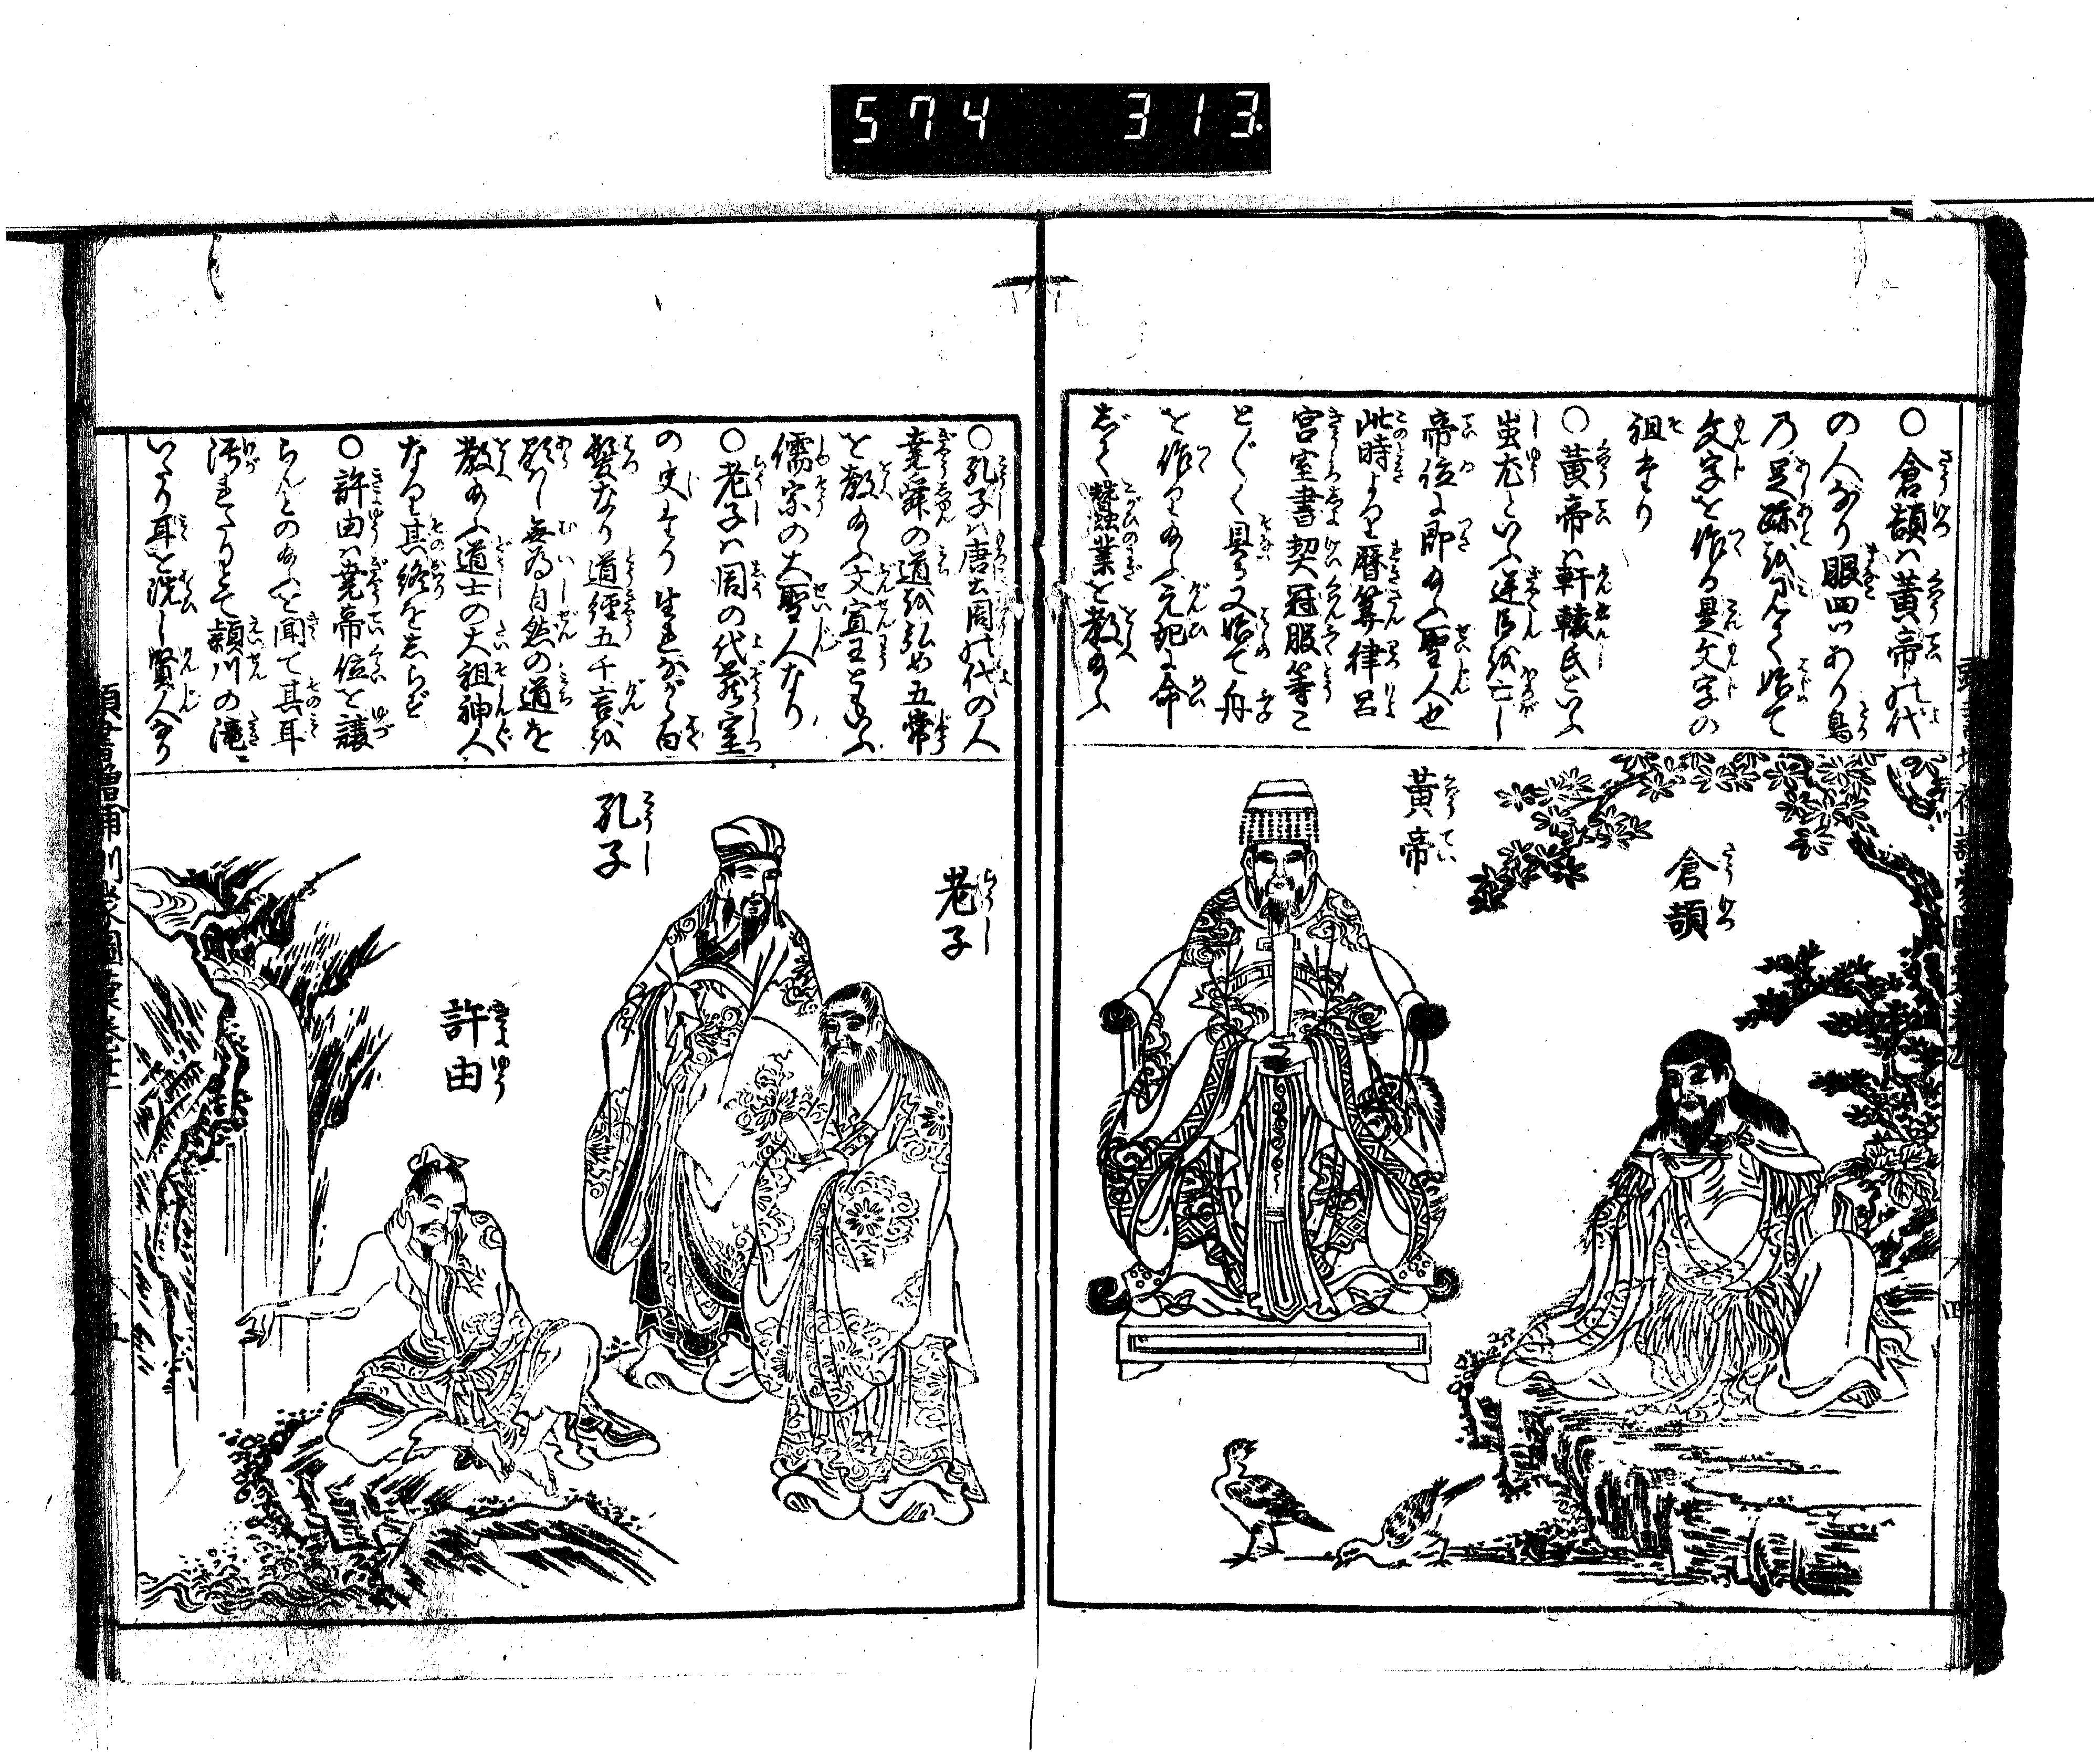 574 313.
○倉頡ハ黄帝の代
の人なり眼四ツあり鳥
乃足跡を見て始て
文字を作る是文字の
祖なり
○黄帝ハ軒轅氏といふ
蚩尤といふ逆臣を亡し
帝位に即給ふ聖人也
此時より暦算律呂
宮室書契冠服等こ
とごとく具る又始て舟
を作り給ふ元妃に命
じて蚕業を教給ふ
黄帝
倉頡
○孔子ハ唐土周の代の人
堯舜の道を弘め五常
を教給ふ文宣王ともいふ
儒宗の大聖人なり
○老子ハ周の代蔵室
の史なり生れながら白
髪なり道経五千言を
顕し無為自然の道を
教給ふ道士の大祖神人
なり其終をしらず
○許由ハ堯帝位を譲
らんとのたまふを聞て其耳
汚れたりとて潁川の滝に
いたり耳を洗し賢人なり
老子
孔子
許由
頭書増補訓蒙圖彙巻之